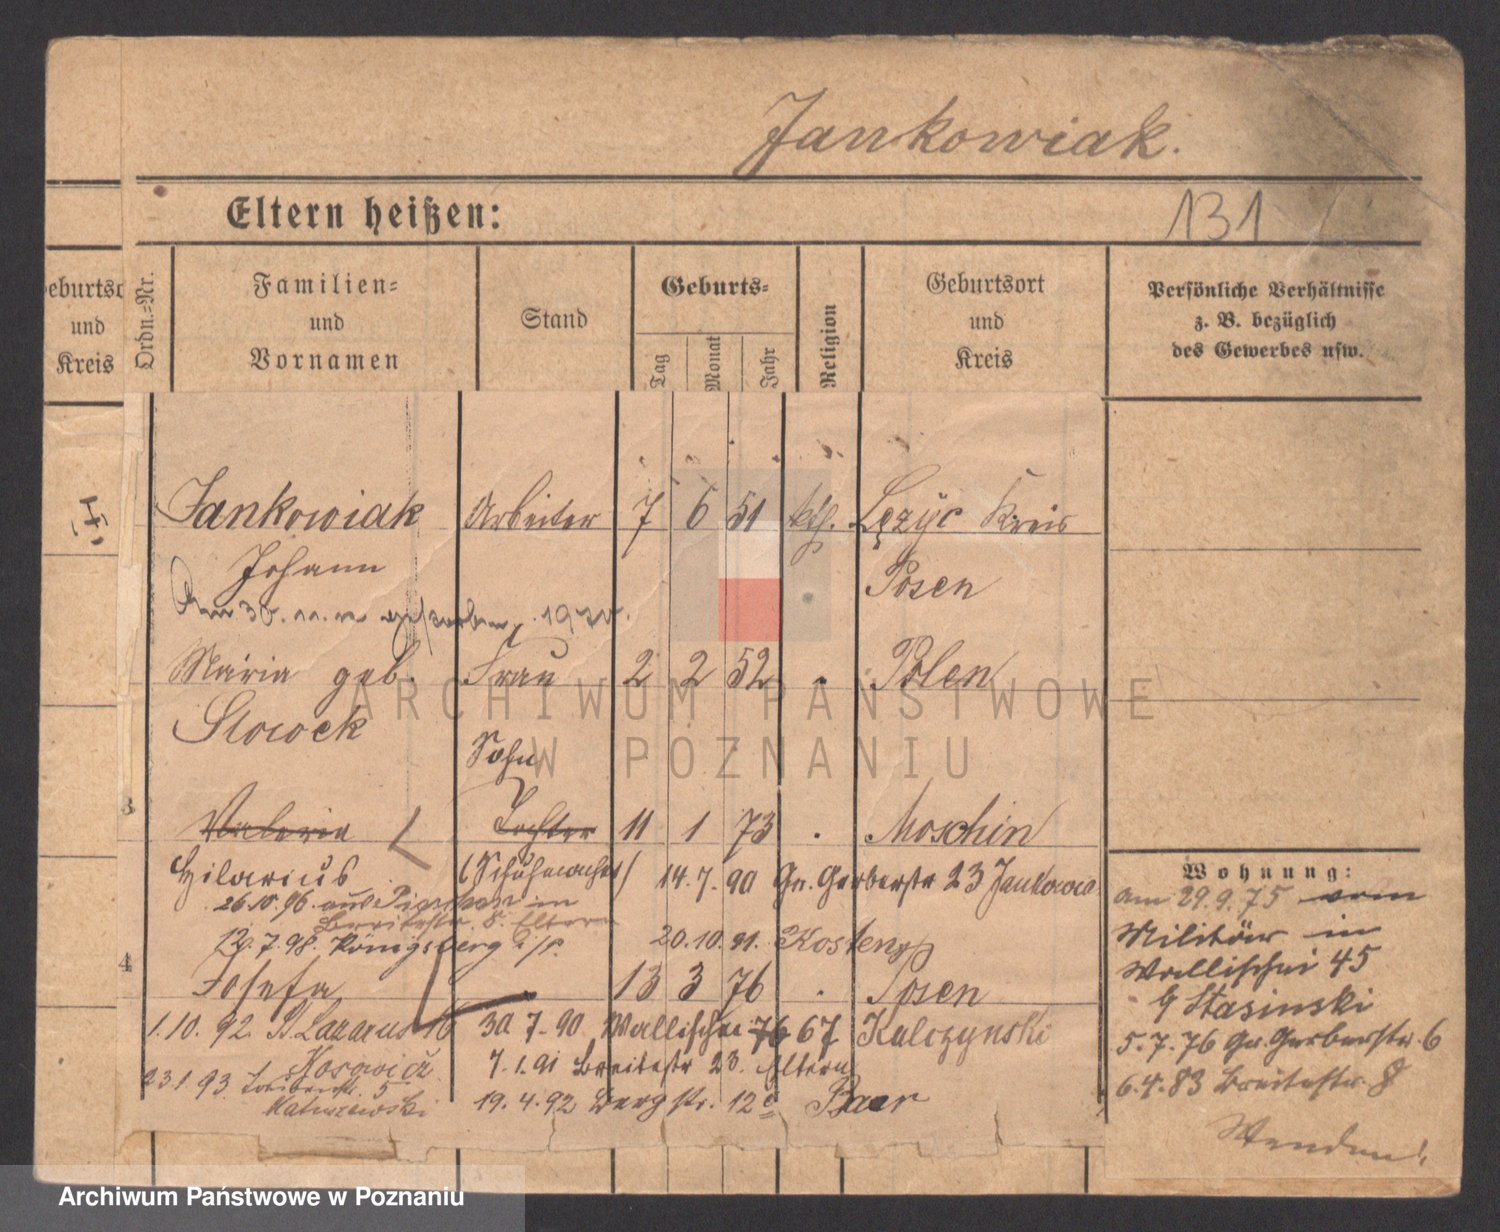 Jankowiak.
Eltern heißen:
131
Geburtsort
und
Kreis
Ordn.-Nr.
Familien-
und
Vornamen
Stand
Geburts-
Tag
Monat
Jahr
Religion
Geburtsort
und
Kreis
Persönliche Verhältnisse
z. B. bezüglich
des Gewerbes usw.
Jankowiak Arbeiter 7 6 51 kth. Lęzyc Kreis
Johann Posen
Am 30. gestorben 1920.
Maria geb. Frau 2 2 52 Polen
Slowek
Sohn
3 Valeria Tochter 11 1 73 Moschin
Hilarius (Schuhmacher) 14. 7. 90 Gr. Gerberstr 23 Jankowia
26.10.96. aus in
Breitestr. 8. Eltern
12. 7. 98. Königsberg i/P. 20. 10. 91. Kosten
4 Josefa 13 3 76 Posen
1. 10. 92. St Lazarus 16 30 7. 90 Wallischei 76 67 Kalczynski
7. 1. 91 Breitestr 23. Eltern
23.1.93. 5
19. 4. 92 Bergstr. 12c Baer
Wohnung:
am 29. 9. 75 vom
Militär in
Wallischei 45
b Stasinski
5. 7. 76 Gr. Gerberstr. 6
6. 4. 83 Breitestr. 8
Wenden!
ARCHIWUM PAŃSTWOWE
W POZNANIU
Archiwum Państwowe w Poznaniu